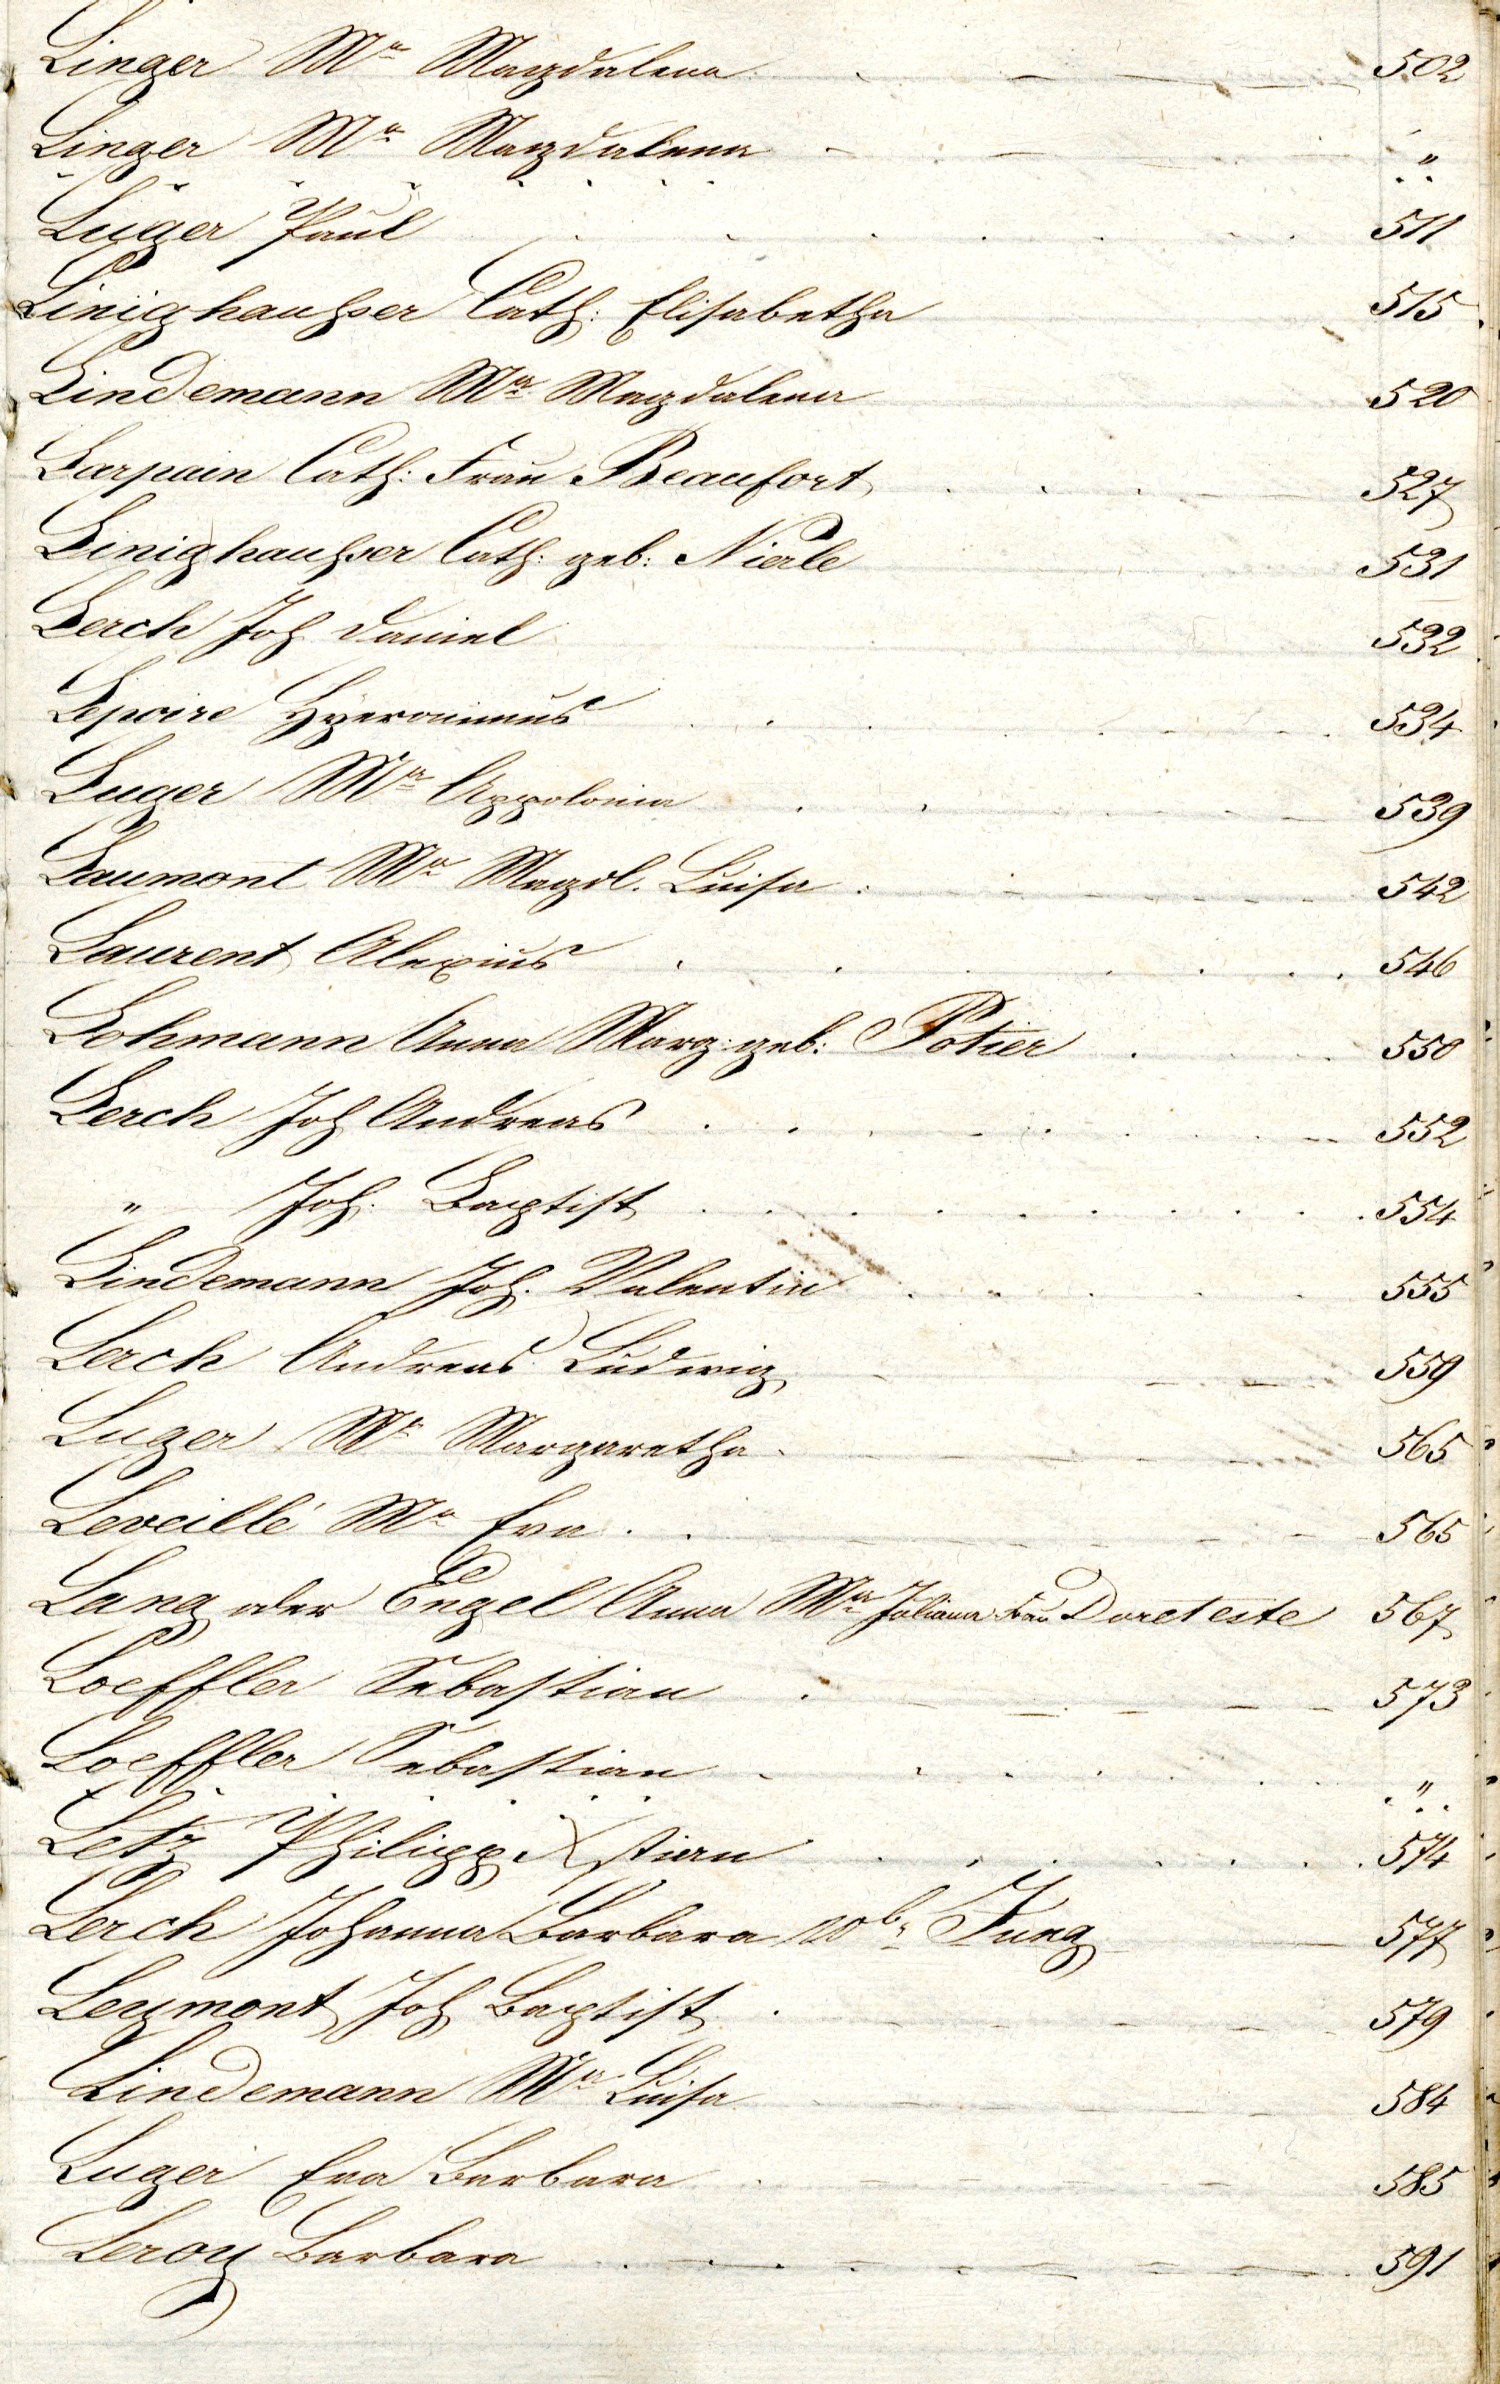 Linger Ma Magdalena 502
Linger Ma Magdalena "
Luger Paul 511
Linighausser Cath: Elisabetha 515
Lindemann Ma Magdalena 520
Larpain Cath: Frau Beaufort 527
Linighausser Cath: geb: Nierle 531
Lerch Joh Daniel 532
Lepoire Hÿeronimus 534
Luger Ma Appolonia 539
Laumont Ma Magd. Luisa 542
Laurent Alexius 546
Lohmann Anna Marg: geb: Potier 550
Lerch Joh Andreas 552
" Joh. Baptist 554
Lindemann Joh. Valentin 555
Lerch Andreas Ludwig 559
Luger Ma Margaretha 565
Leveillé Ma Eva 565
Lang oder Engel Anna Ma Juliana Frau Doreteste 567
Loeffler Sebastian 573
Loeffler Sebastian "
Letz Philipp Xstian 574
Lerch Johanna Barbara Jung 577
Leymont Joh Baptist 579
Lindemann Ma Luisa 584
Luger Eva Barbara 585
Leroy Barbara 591